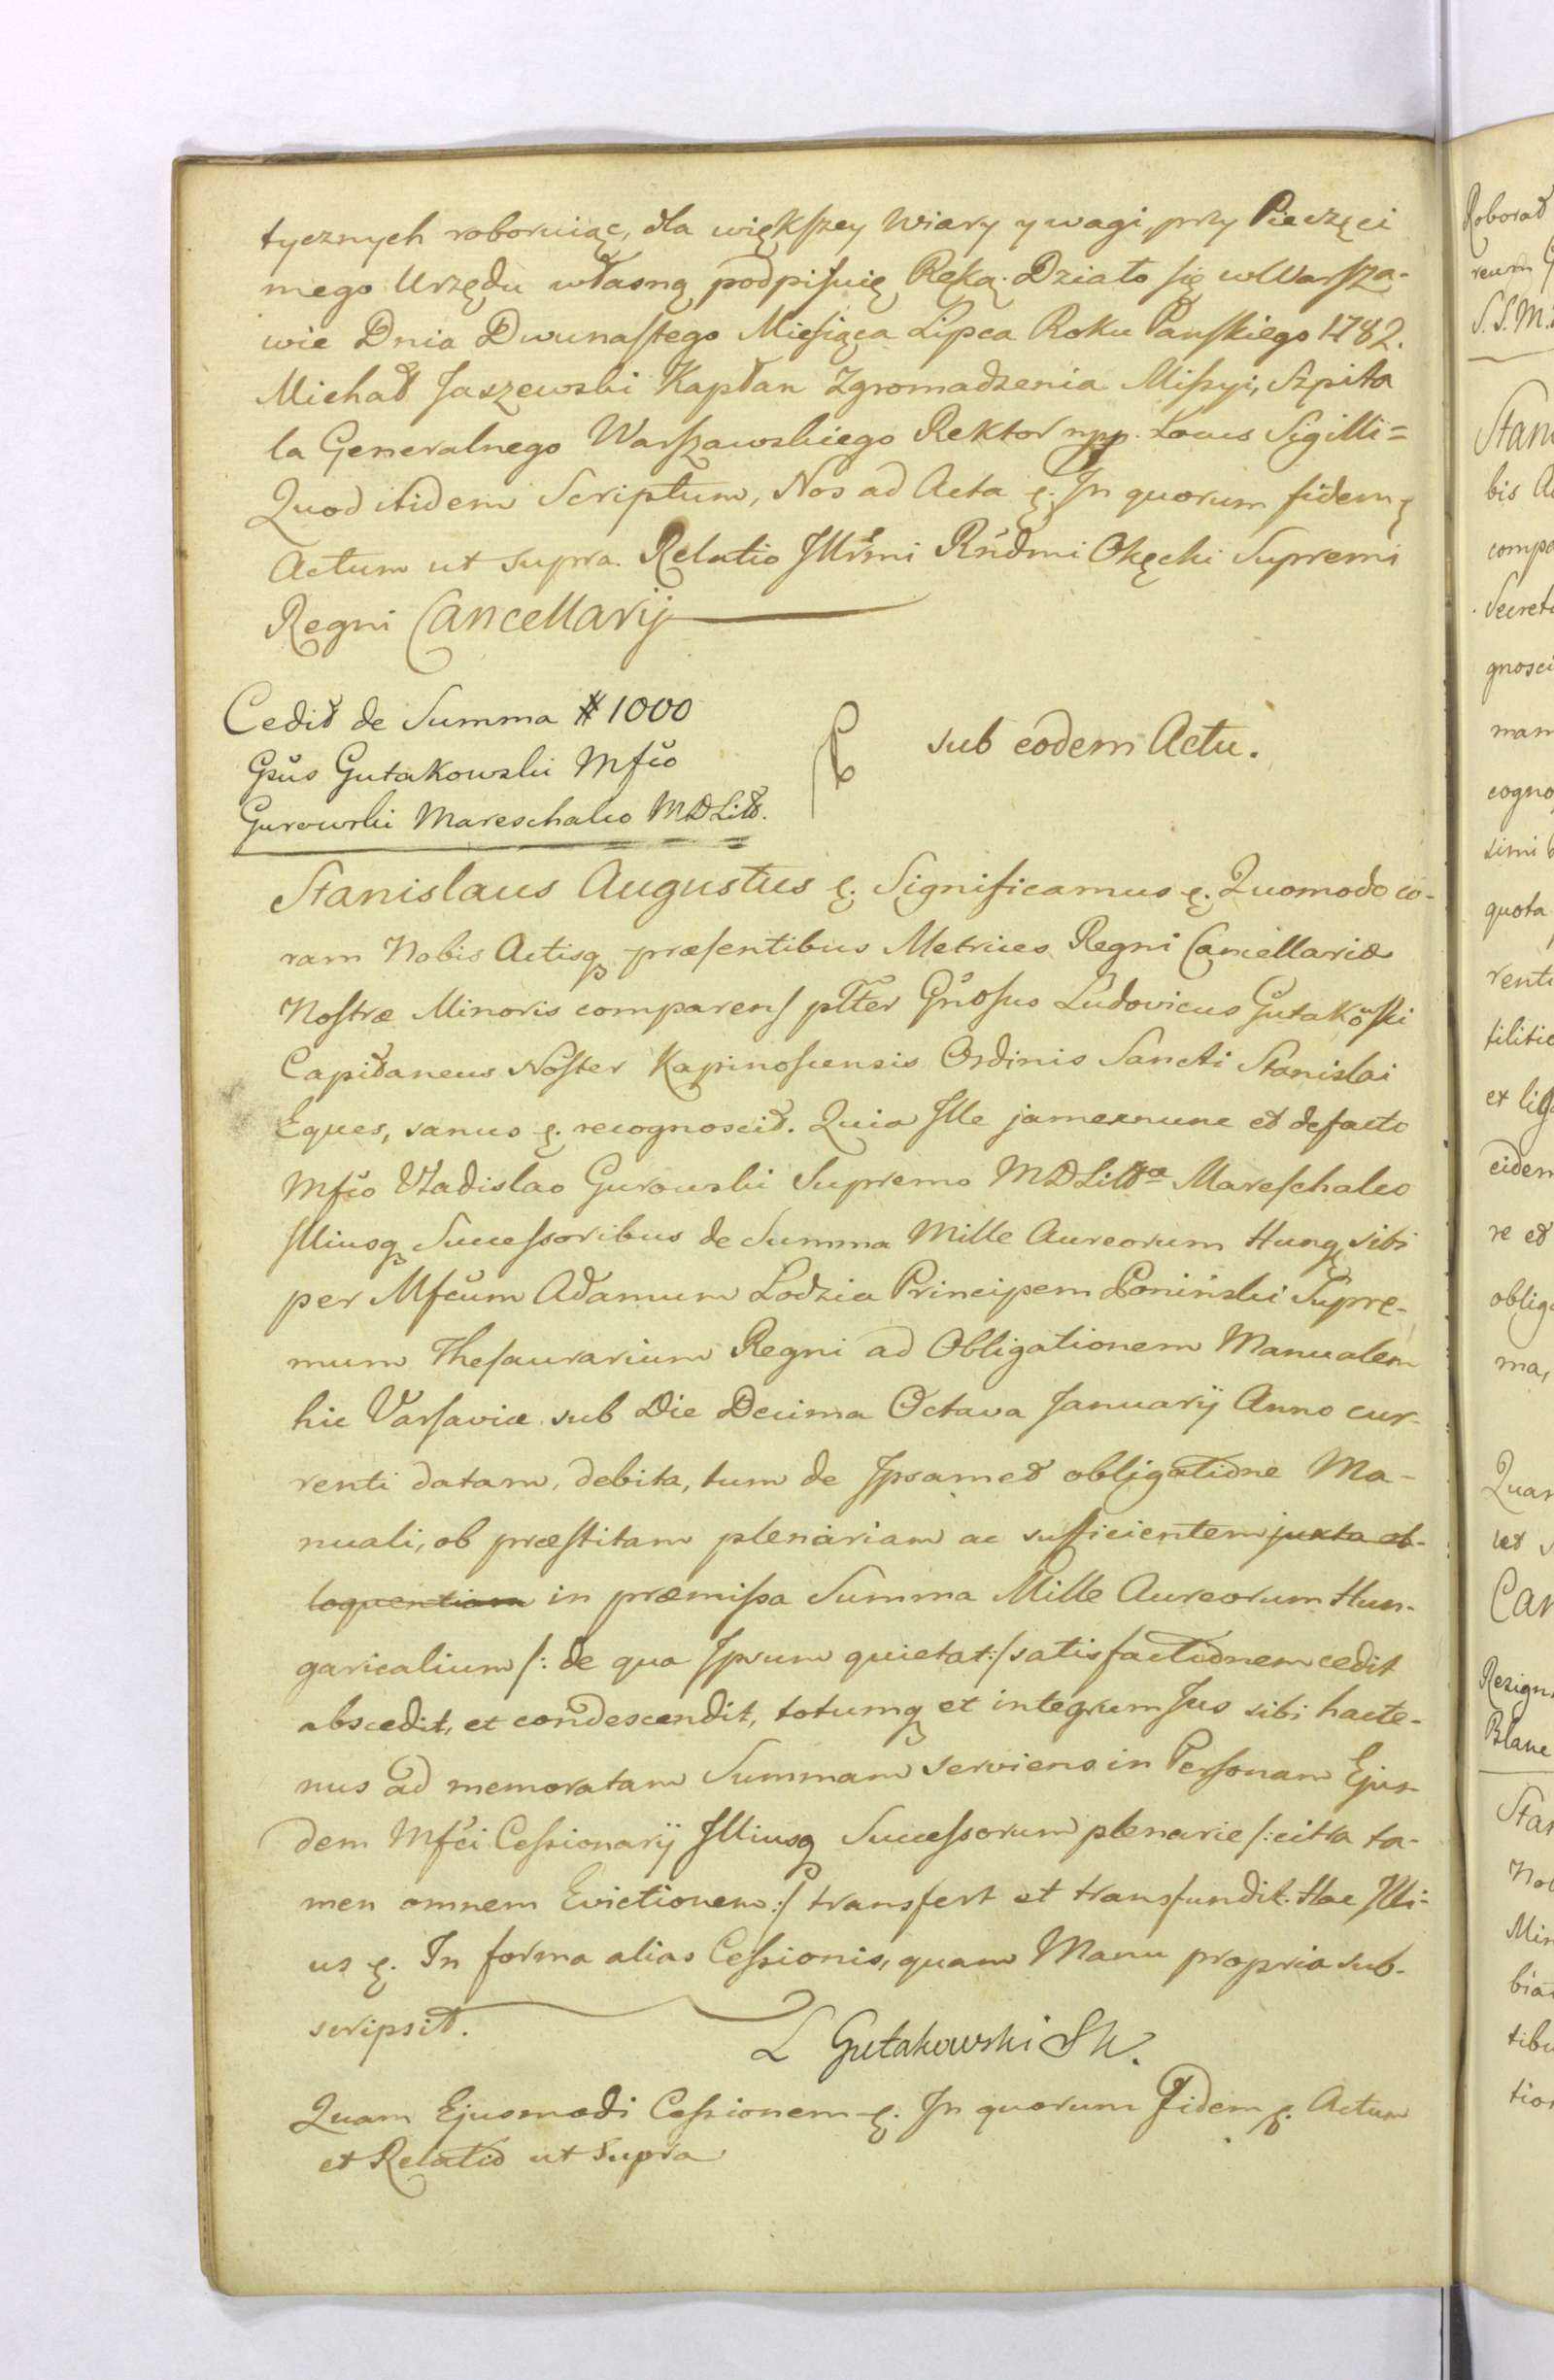 tycznych roboruiąc, dla większey Wiary y wagi, przy Pieczęci
mego Urzędu własną podpisuię Ręką. Działo się w Warsza-
wie Dnia Dwunastego Miesiąca Lipca Roku Pańskiego 1782.
Michał Jaszewski Kapłan Zgromadzenia Missyi, Szpita
la Generalnego Warszawskiego Rektor mpp. Locus Sigilli =
Quod itidem Scriptum, Nos ad Acta &. In quorum fidem &
Actum ut supra. Relatio Illrmi Rndmi Okęcki Supremi
Regni Cancellarij
Cedit de Summa # 1000
Gsus Gutakowski Mfco
Gurowski Mareschalco MDLitt.
sub eodem Actu.
Stanislaus Augustus &. Significamus &. Quomodo co-
ram Nobis Actisq præsentibus Metrices Regni Cancellariæ
Nostræ Minoris comparens pltter Gnosus Ludovicus Gutakowski
Capitaneus Noster Kapinoscensis Ordinis Sancti Stanislai
Eques, sanus &. recognoscit. Quia Ille jamexnunc et defacto
Mfco Vladislao Gurowski Supremo MDLittæ Mareschalco
Illiusq Successoribus de Summa Mille Aureorum Hung sibi
per Mfcum Adamum Lodzia Principem Poniński Supre-
mum Thesaurarium Regni ad Obligationem Manualem
hic Varsaviæ sub Die Decima Octava Januarij Anno cur-
renti datam, debita, tum de Ipsamet obligatione Ma-
nuali, ob præstitam plenariam ac sufficientem juxta ob-
loquentiam in præmissa Summa Mille Aureorum Hun-
garicalium /: de qua Ipsum quietat :/ satisfactionem cedit
abscedit, et condescendit, totumq et integrum Jus sibi hacte-
nus ad memoratam Summam serviens in Personam Ejus-
dem Mfci Cessionarij Illiusq Successorum plenarie /: citra ta-
men omnem Evictionem :/ transfert et transfundit. Hac Illi-
us &. In forma alias Cessionis, quam Manu propria sub-
scripsit.
L Gutakowski SK.
Quam Ejusmodi Cessionem &. In quorum Fidem &. Actum
et Relatio ut Supra
Roborat
reum
S.S.M.
Stan
bis A
compa
Secret
gnosci
mam
cogno
simi
quota
renti
tilitio
et
eidem
re et
oblig
ma,
Quam
Can
Resign
Blanc
Stan
No
Min
bia
tibu
tion